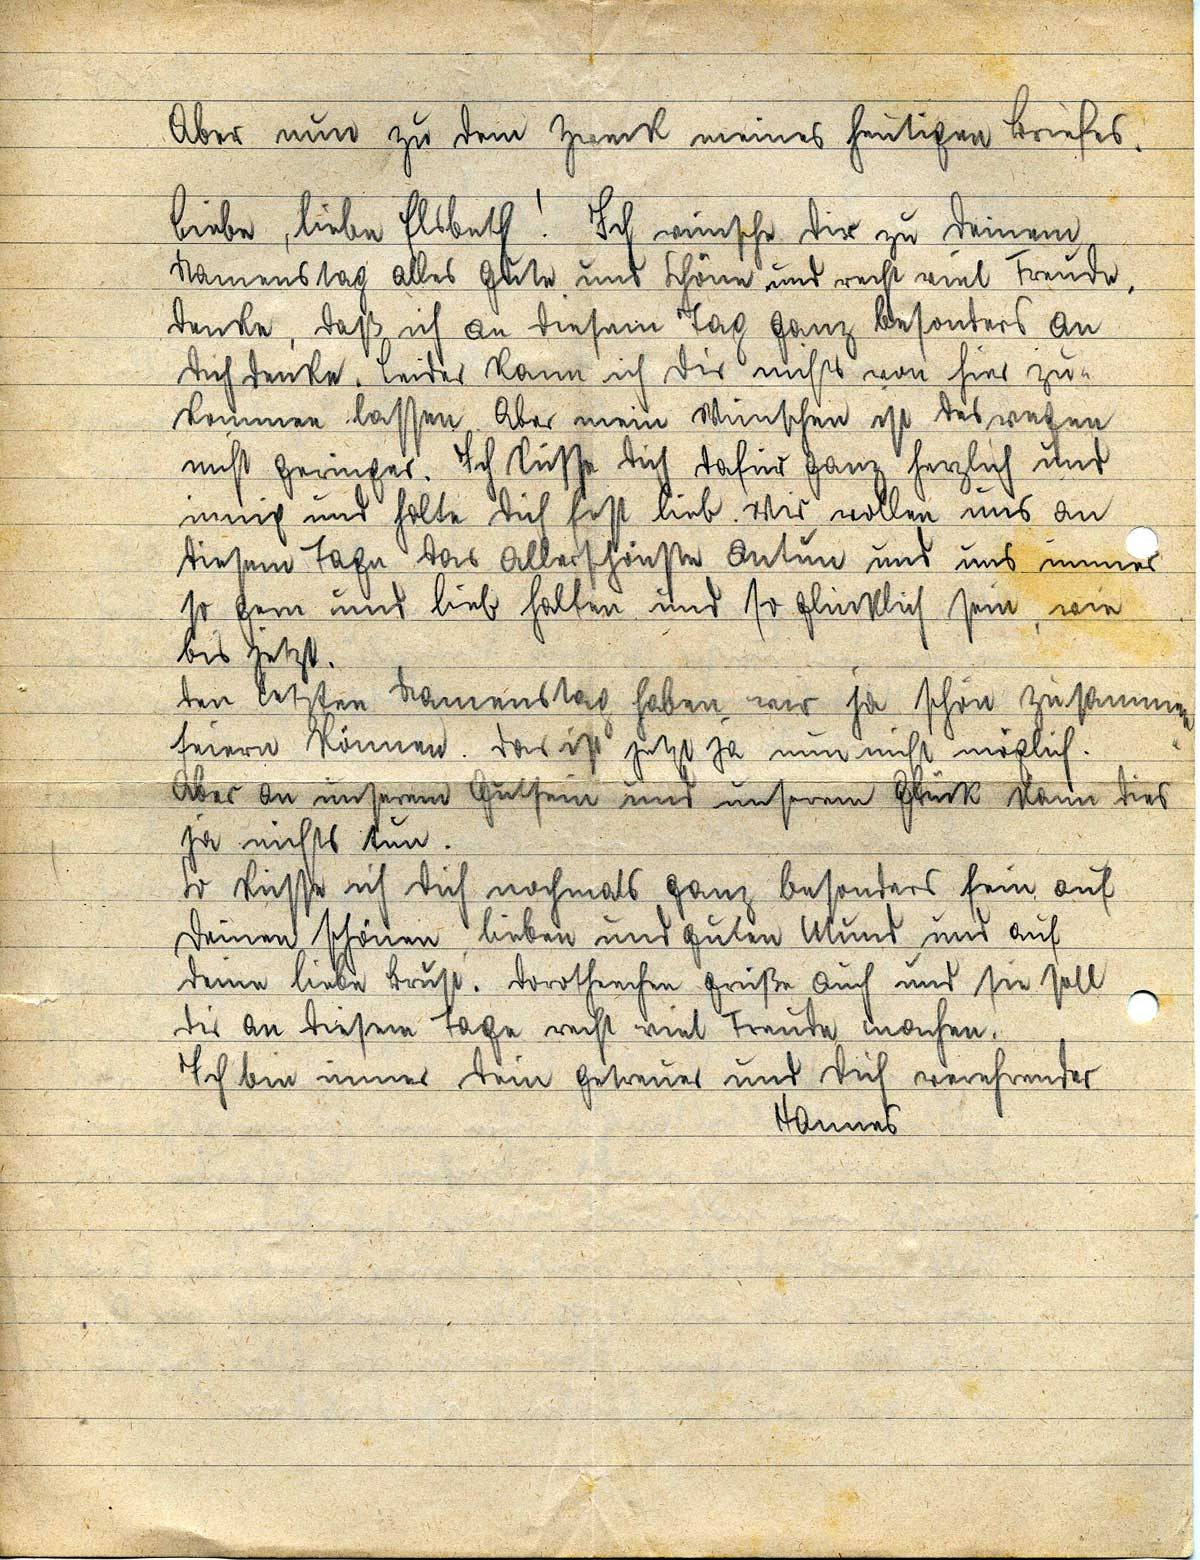 Aber nun zu dem Zweck meines heutigen Briefes.
Liebe, liebe Elsbeth! Ich wünsche Dir zu Deinem
Namenstag alles Gute und Schöne und recht viel Freude.
Denke, daß ich an diesem Tag ganz besonders an
Dich denke. Leider kann ich Dir nichts von hier zu-
kommen lassen. Aber mein Wünschen ist deswegen
nicht geringer. Ich küsse Dich dafür ganz herzlich und
innig und halte Dich fest lieb. Wir wollen uns an
diesem Tage das Allerschönste antun und uns immer
so gern und lieb halten und so glücklich sein, wie
bis jetzt.
Den letzten Namenstag haben wir ja schön zusammen
feiern können. Das ist jetzt ja nun nicht möglich.
Aber an unserem Gutsein und unserem Glück kann dies
ja nichts tun.
So küsse ich Dich nochmals ganz besonders fein auf
Deinen schönen, lieben und guten Mund und auf
Deine liebe Brust. Dorotheechen grüße auch und sie soll
Dir an diesem Tage recht viel Freude machen.
Ich bin immer Dein getreuer und Dich verehrender
Hannes